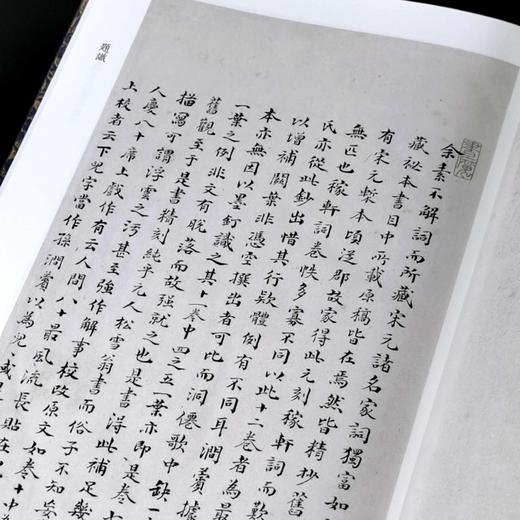 題識
余素不解詞而所藏宋元諸名家詞獨富如
藏祕本書目中所載原稿皆在焉然皆精抄舊
有宋元槧本頃從郡故家得此元刻稼軒詞而歎
無匹也稼軒詞卷帙多寡不同以此十二卷者為最
氏亦從此鈔出惜其行欵體例有不同耳澗薲據
以增補闕葉非憑空撰出者可比而洞僊歌中缺一
本亦無因以墨釘識之其十一卷中四之五一葉亦即是卷七
一葉之例非文有脫落而故強就之也是書得此補足幾
舊觀至于是書精刻純乎元人松雪翁書而俗子不知妄
描寫可謂浮雲之污甚至強作解事校改原文如卷十中
人慶八十席上戲作有云人間八十最風流長貼在
上校者云下兒字當作孫澗薲以為兒